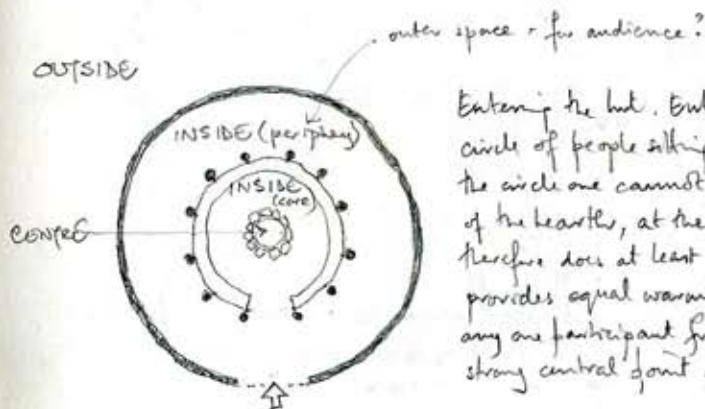 outer space - for audience?
OUTSIDE
INSIDE (periphery)
INSIDE
(core)
CENTRE
Entering the hut. Ent
circle of people sitting
the circle one cannot
of the hearth, at the
therefore does at least
provides equal warm
any one participant fr
strong central point